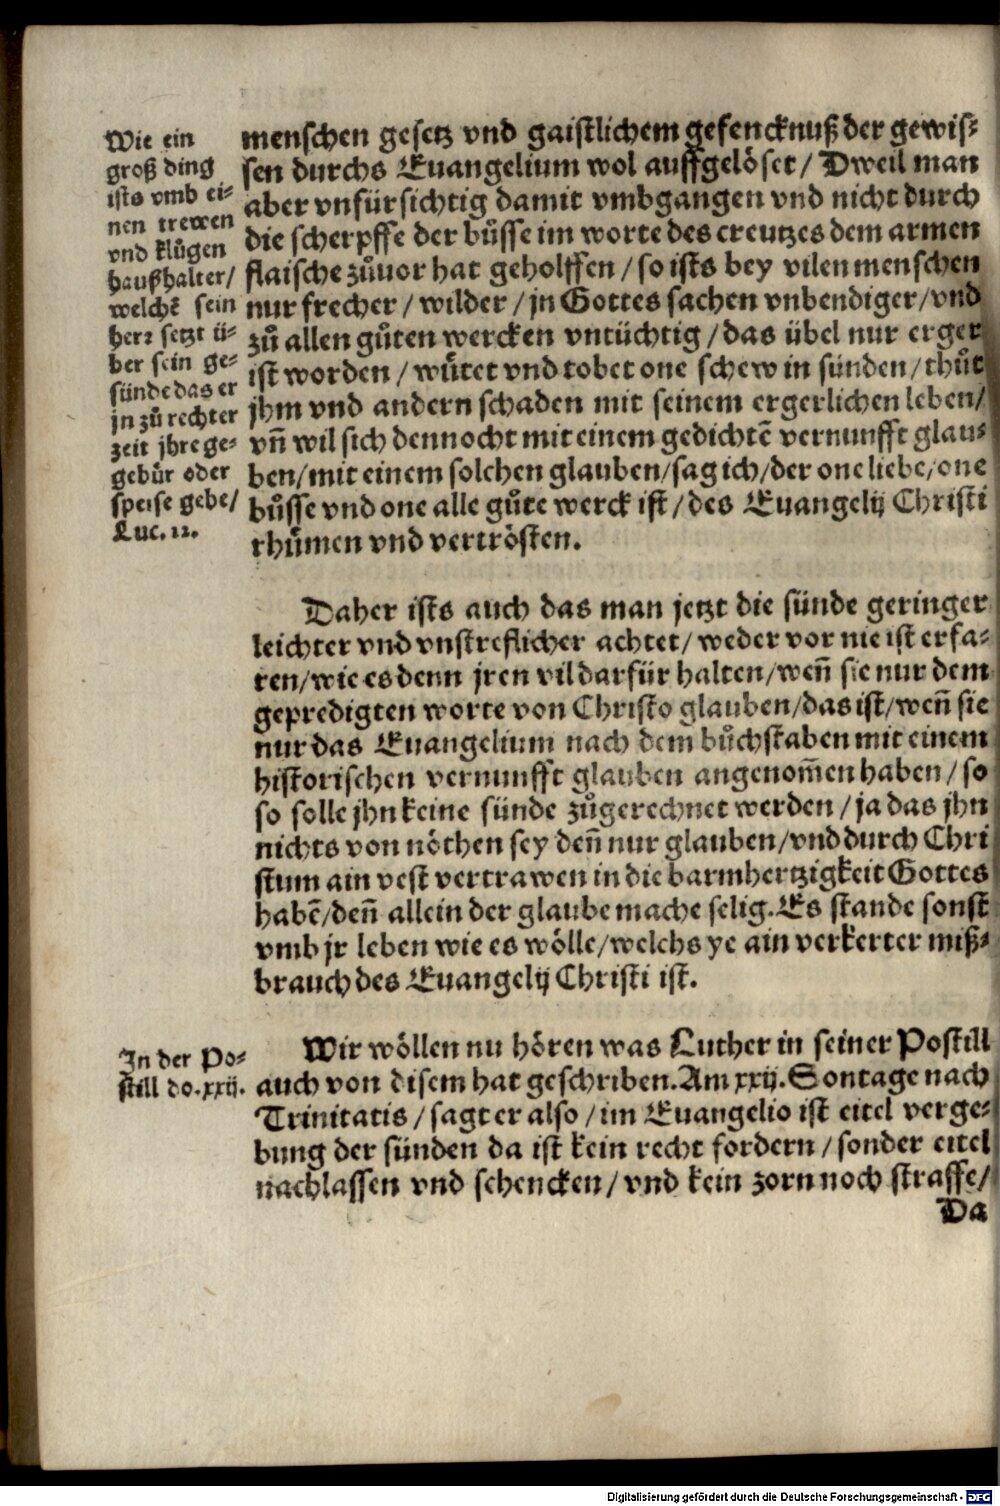 Wie ein
groß ding
ists vmb ei-
nen trewen
vnd klůgen
haußhalter/
welchẽ sein
herꝛ setzt ü-
ber sein ge-
sünde das er
jn zů rechter
zeit jhre ge-
gebür oder
speise gebe/
Luc. 12.
menschen gesetz vnd gaistlichem gefencknuß der gewis-
sen durchs Euangelium wol auffgelöset/ Dweil man
aber vnfürsichtig damit vmbgangen vnd nicht durch
die scherpffe der bůsse im worte des creutzes dem armen
flaische zůuor hat geholffen/ so ists bey vilen menschen
nur frecher/ wilder/ jn Gottes sachen vnbendiger/ vnd
zů allen gůten wercken vntüchtig/ das übel nur erger
ist worden/ wůtet vnd tobet one schew in sünden/ thůt
jhm vnd andern schaden mit seinem ergerlichen leben/
vñ wil sich dennocht mit einem gedichtẽ vernunfft glau-
ben/ mit einem solchen glauben/ sag ich/ der one liebe/ one
bůsse vnd one alle gůte werck ist/ des Euangelij Christi
rhůmen vnd vertrösten.
Daher ists auch das man jetzt die sünde geringer
leichter vnd vnstreflicher achtet/ weder vor nie ist erfa-
ren/ wie es denn jren vil darfür halten/ weñ sie nur dem
gepredigten worte von Christo glauben/ das ist/ weñ sie
nur das Euangelium nach dem bůchstaben mit einem
historischen vernunfft glauben angenom̃en haben/ so
so solle jhn keine sünde zůgerechnet werden/ ja das jhn
nichts von nöthen sey deñ nur glauben/ vnd durch Chri
stum ain vest vertrawen in die barmhertzigkeit Gottes
habẽ/ deñ allein der glaube mache selig. Es stande sonst
vmb jr leben wie es wölle/ welchs ye ain verkerter miß-
brauch des Euangelij Christi ist.
In der Po-
still do. xxij.
Wir wöllen nu hören was Luther in seiner Postill
auch von disem hat geschriben. Am xxij. Sontage nach
Trinitatis/ sagt er also/ im Euangelio ist eitel verge-
bung der sünden da ist kein recht fordern/ sonder eitel
nachlassen vnd schencken/ vnd kein zorn noch straffe/
Da
Digitalisierung gefördert durch die Deutsche Forschungsgemeinschaft - DFG